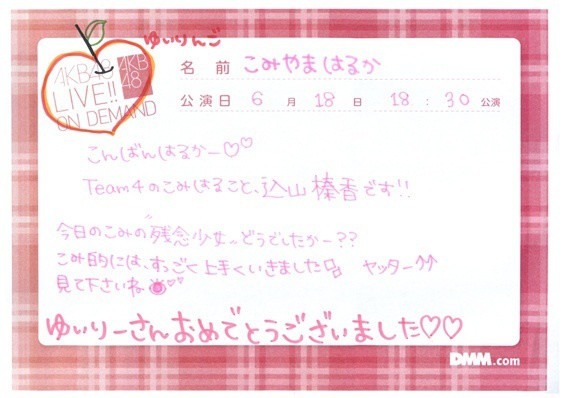 ゆいりんご
AKB48
AKB
48
LIVE!!
ON DEMAND
名 前 こみやまはるか
公演日 6 月 18 日 18 : 30 公演
こんばんはるかー♡♡
Team4のこみはること、込山榛香です!!
今日のこみの"残念少女"どうでしたかー??
こみ的には、すっごく上手くいきました ヤッター↑↑
見て下さいね♡♡
ゆいりーさんおめでとうございました♡♡
DMM.com